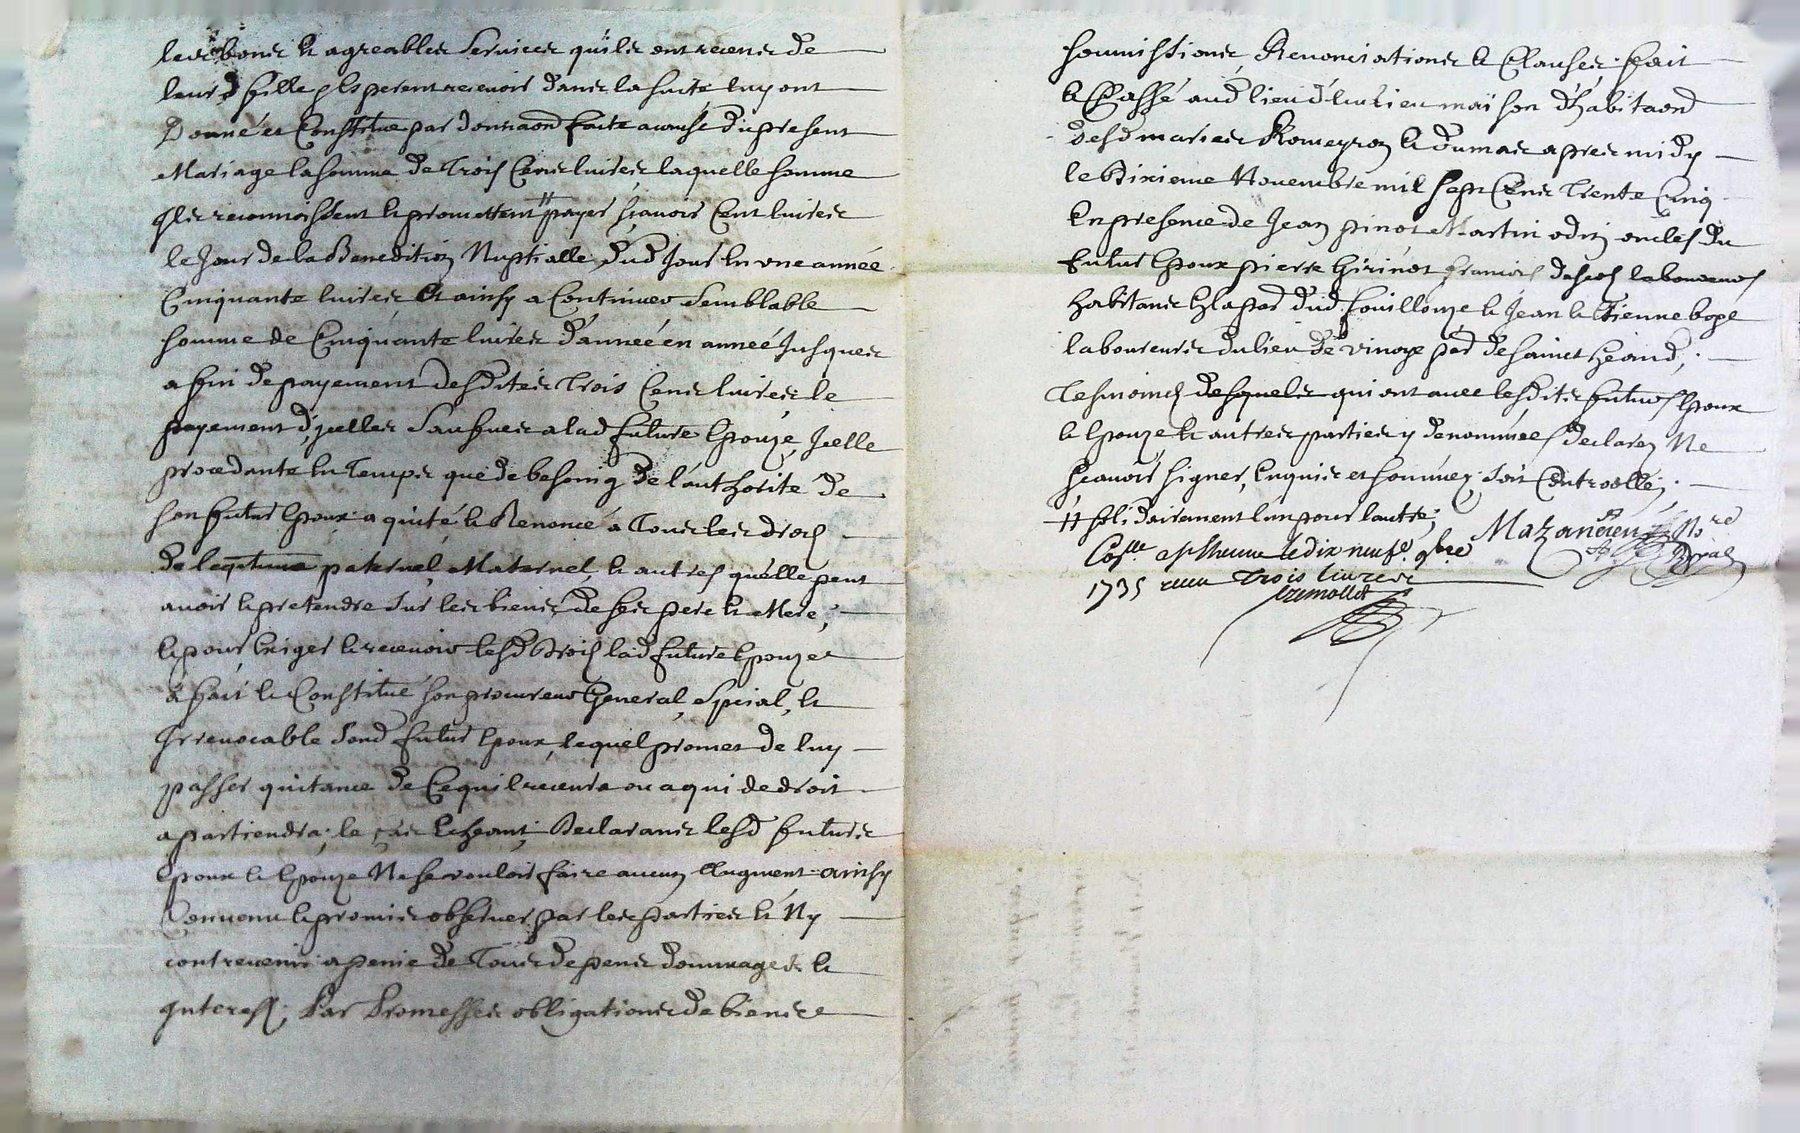 les bons et agreables services quils ont receus de
leurd fille et esperent recevoir dans la suite luy ont
Donné et Constitue par donnaon faite a cause du present
Mariage la somme de Trois Cens livres laquelle somme
ils reconnoissent et promettent # payer sçavoir Cent livres
le Jour de la Benediction Nuptialle, dud Jour en une année
Cinquante livres Et ainsy a Continuer semblable
somme de Cinquante livres d'année en année Jusques
a fin de payement desdites Trois Cens livres le
payement d'jcelles sauf a lad future Epouze, Jcelle
procedante en Temps que de besoing de l'authorité de
son futur Epoux a quité et Renoncé a Tous les droits
de legitime paternel, Maternel, et autres quelle peut
avoir et pretendre sur les biens de ses pere et Mere,
et pour Exiger et recevoir lesd droits lad future Epouze
a fait et Constitué son procureur General, special, et
Irrevocable sond futur Epoux, lequel promet de luy
passer quitance de Ce quil recevra ou a qui de droit
apartiendra, le cas Echeant; Declarans lesd futurs
Epoux et Epouze Ne se vouloir faire aucun Augment = ainsy
Convenu et promis observer par les parties et Ny
contrevenir a peine de Tous depens dommages et
Interests, Par Promesses obligations de biens
soumissions, Renonciations et Clauses; fait
et Passé aud lieu maison d'habitaon
desd maries Romeyron et Dumas apres midy
le Dixieme Novembre mil sept Cens Trente Cinq
En presence de Jean pinot Martin odin oncles du
futur Epoux pierre Girinot francois laboureurs
habitans En la par dud fouillouze et Jean et Etienne boge
laboureurs du lieu de vinoye par de sainct heand;
Tesmoins desquels qui ont avec lesdits futurs Epoux
et Epouze et autres parties y denommées Declaré Ne
sçavoir signer, Enquis et sommez, soit Controollé;
# solidairement lun pour lautre;
Mazandieu Nre Royal
Collé a St Etienne le dix neufe 9bre
1735 receu Trois livres